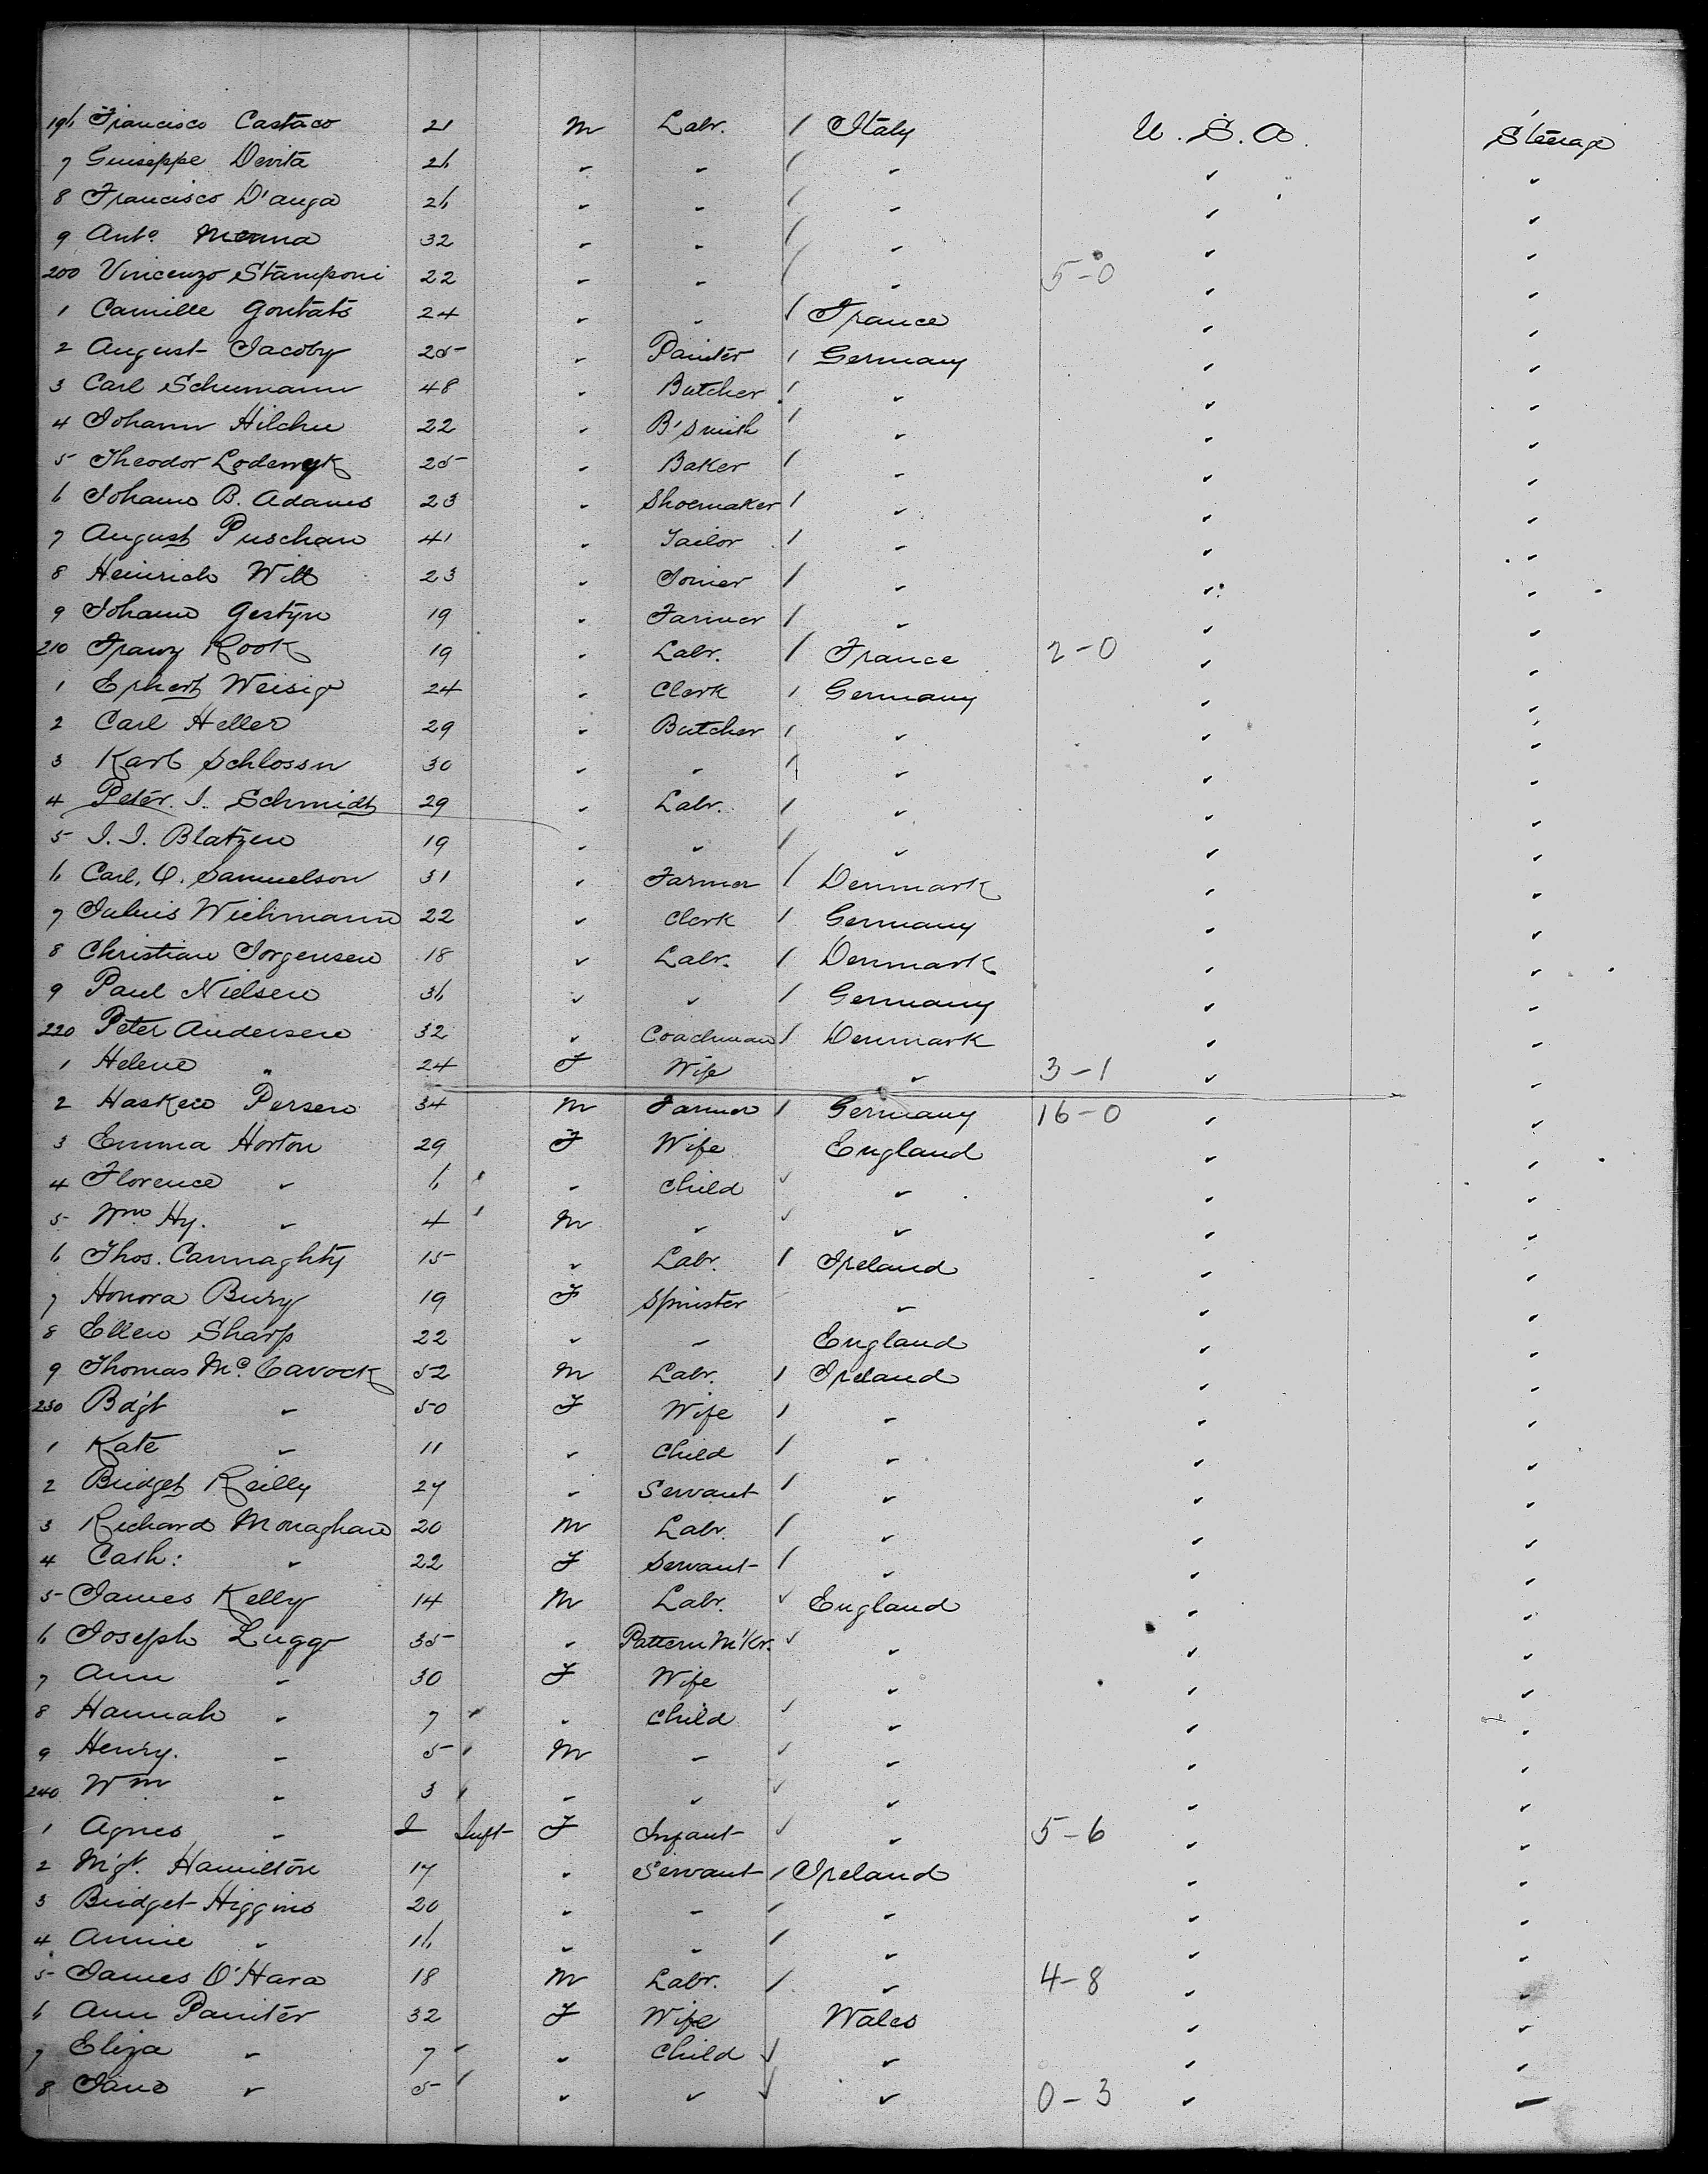 196 Francisco Castaco 21 M Labr. / Italy U. S. A. Steerage
7 Guiseppe Devita 26 " " / " " "
8 Francisco D'auga 26 " " / " " "
9 Anto. Menna 32 " " / " " "
200 Vincenzo Stamponi 22 " " / " 5-0 " "
1 Camille Gontats 24 " " / France " "
2 August Jacoby 25 " Painter / Germany " "
3 Carl Schumann 48 " Butcher / " " "
4 Johann Hilchu 22 " B'smith / " " "
5 Theodor Lodewyk 25 " Baker / " " "
6 Johann B. Adams 23 " Shoemaker / " " "
7 August Puschan 41 " Tailor / " " "
8 Heinrich Witt 23 " Joiner / " " "
9 Johann Gestyn 19 " Farmer / " " "
210 Franz Rook 19 " Labr. / France 2-0 " "
1 Ephert Weisig 24 " Clerk / Germany " "
2 Carl Heller 29 " Butcher / " " "
3 Karl Schlossn 30 " " / " " "
4 Peter. J. Schmidt 29 " Labr. / " " "
5 J. J. Blatzen 19 " " / " " "
6 Carl. O. Samuelson 31 " Farmer / Denmark " "
7 Julius Wichmann 22 " Clerk / Germany " "
8 Christian Jorgensen 18 " Labr. / Denmark " "
9 Paul Nielsen 36 " " / Germany " "
220 Peter Andersen 32 " Coachman / Denmark " "
1 Helene " 24 F Wife " 3-1 " "
2 Haskew Persen 34 M Farmer / Germany 16-0 " "
3 Emma Horton 29 F Wife England " "
4 Florence " 6 / " Child ✓ " " "
5 Wm. Hy. " 4 / M " ✓ " " "
6 Thos. Cannaghty 15 " Labr. / Ireland " "
7 Honora Bury 19 F Spinster " " "
8 Ellen Sharp 22 " " England " "
9 Thomas Mc. Cavock 52 M Labr. / Ireland " "
230 Bdgt " 50 F Wife / " " "
1 Kate " 11 " Child / " " "
2 Bridget Reilly 27 " Servant / " " "
3 Richard Monaghan 20 M Labr. / " " "
4 Cath: " 22 F Servant / " " "
5 James Kelly 14 M Labr. ✓ England " "
6 Joseph Lugg 35 " Pattern M'Kr. ✓ " " "
7 Ann " 30 F Wife " " "
8 Hannah " 7 / " Child ✓ " " "
9 Henry. " 5 / M " ✓ " " "
240 Wm " 3 / " " ✓ " " "
1 Agnes " I Inft F Infant ✓ " 5-6 " "
2 Mgt. Hamilton 17 " Servant / Ireland " "
3 Bridget Higgins 20 " " / " " "
4 Annie " 16 " " / " " "
5 James O'Hara 18 M Labr. / " 4-8 " "
6 Ann Painter 32 F Wife Wales " "
7 Eliza " 7 / " Child ✓ " " "
8 Jane " 5 / " " ✓ " 0-3 " "